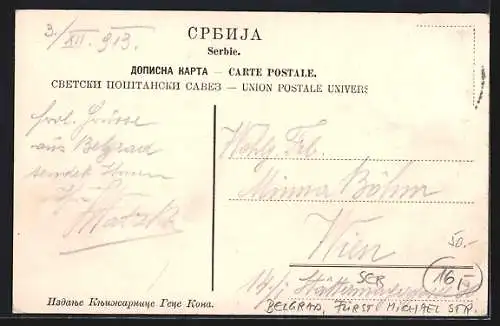 3./XII. 913.
СРБИЈА
Serbie.
ДОПИСНА КАРТА — CARTE POSTALE.
СВЕТСКИ ПОШТАНСКИ САВЕЗ — UNION POSTALE UNIVERS
Grüsse
aus Belgrad
sendet Ihnen
Wohlg Frl.
Minna Böhm
Wien
50.-
SER
16,-
BELGRAD, FÜRST MICHAEL SER.
Издање Књижарнице Геце Кона.